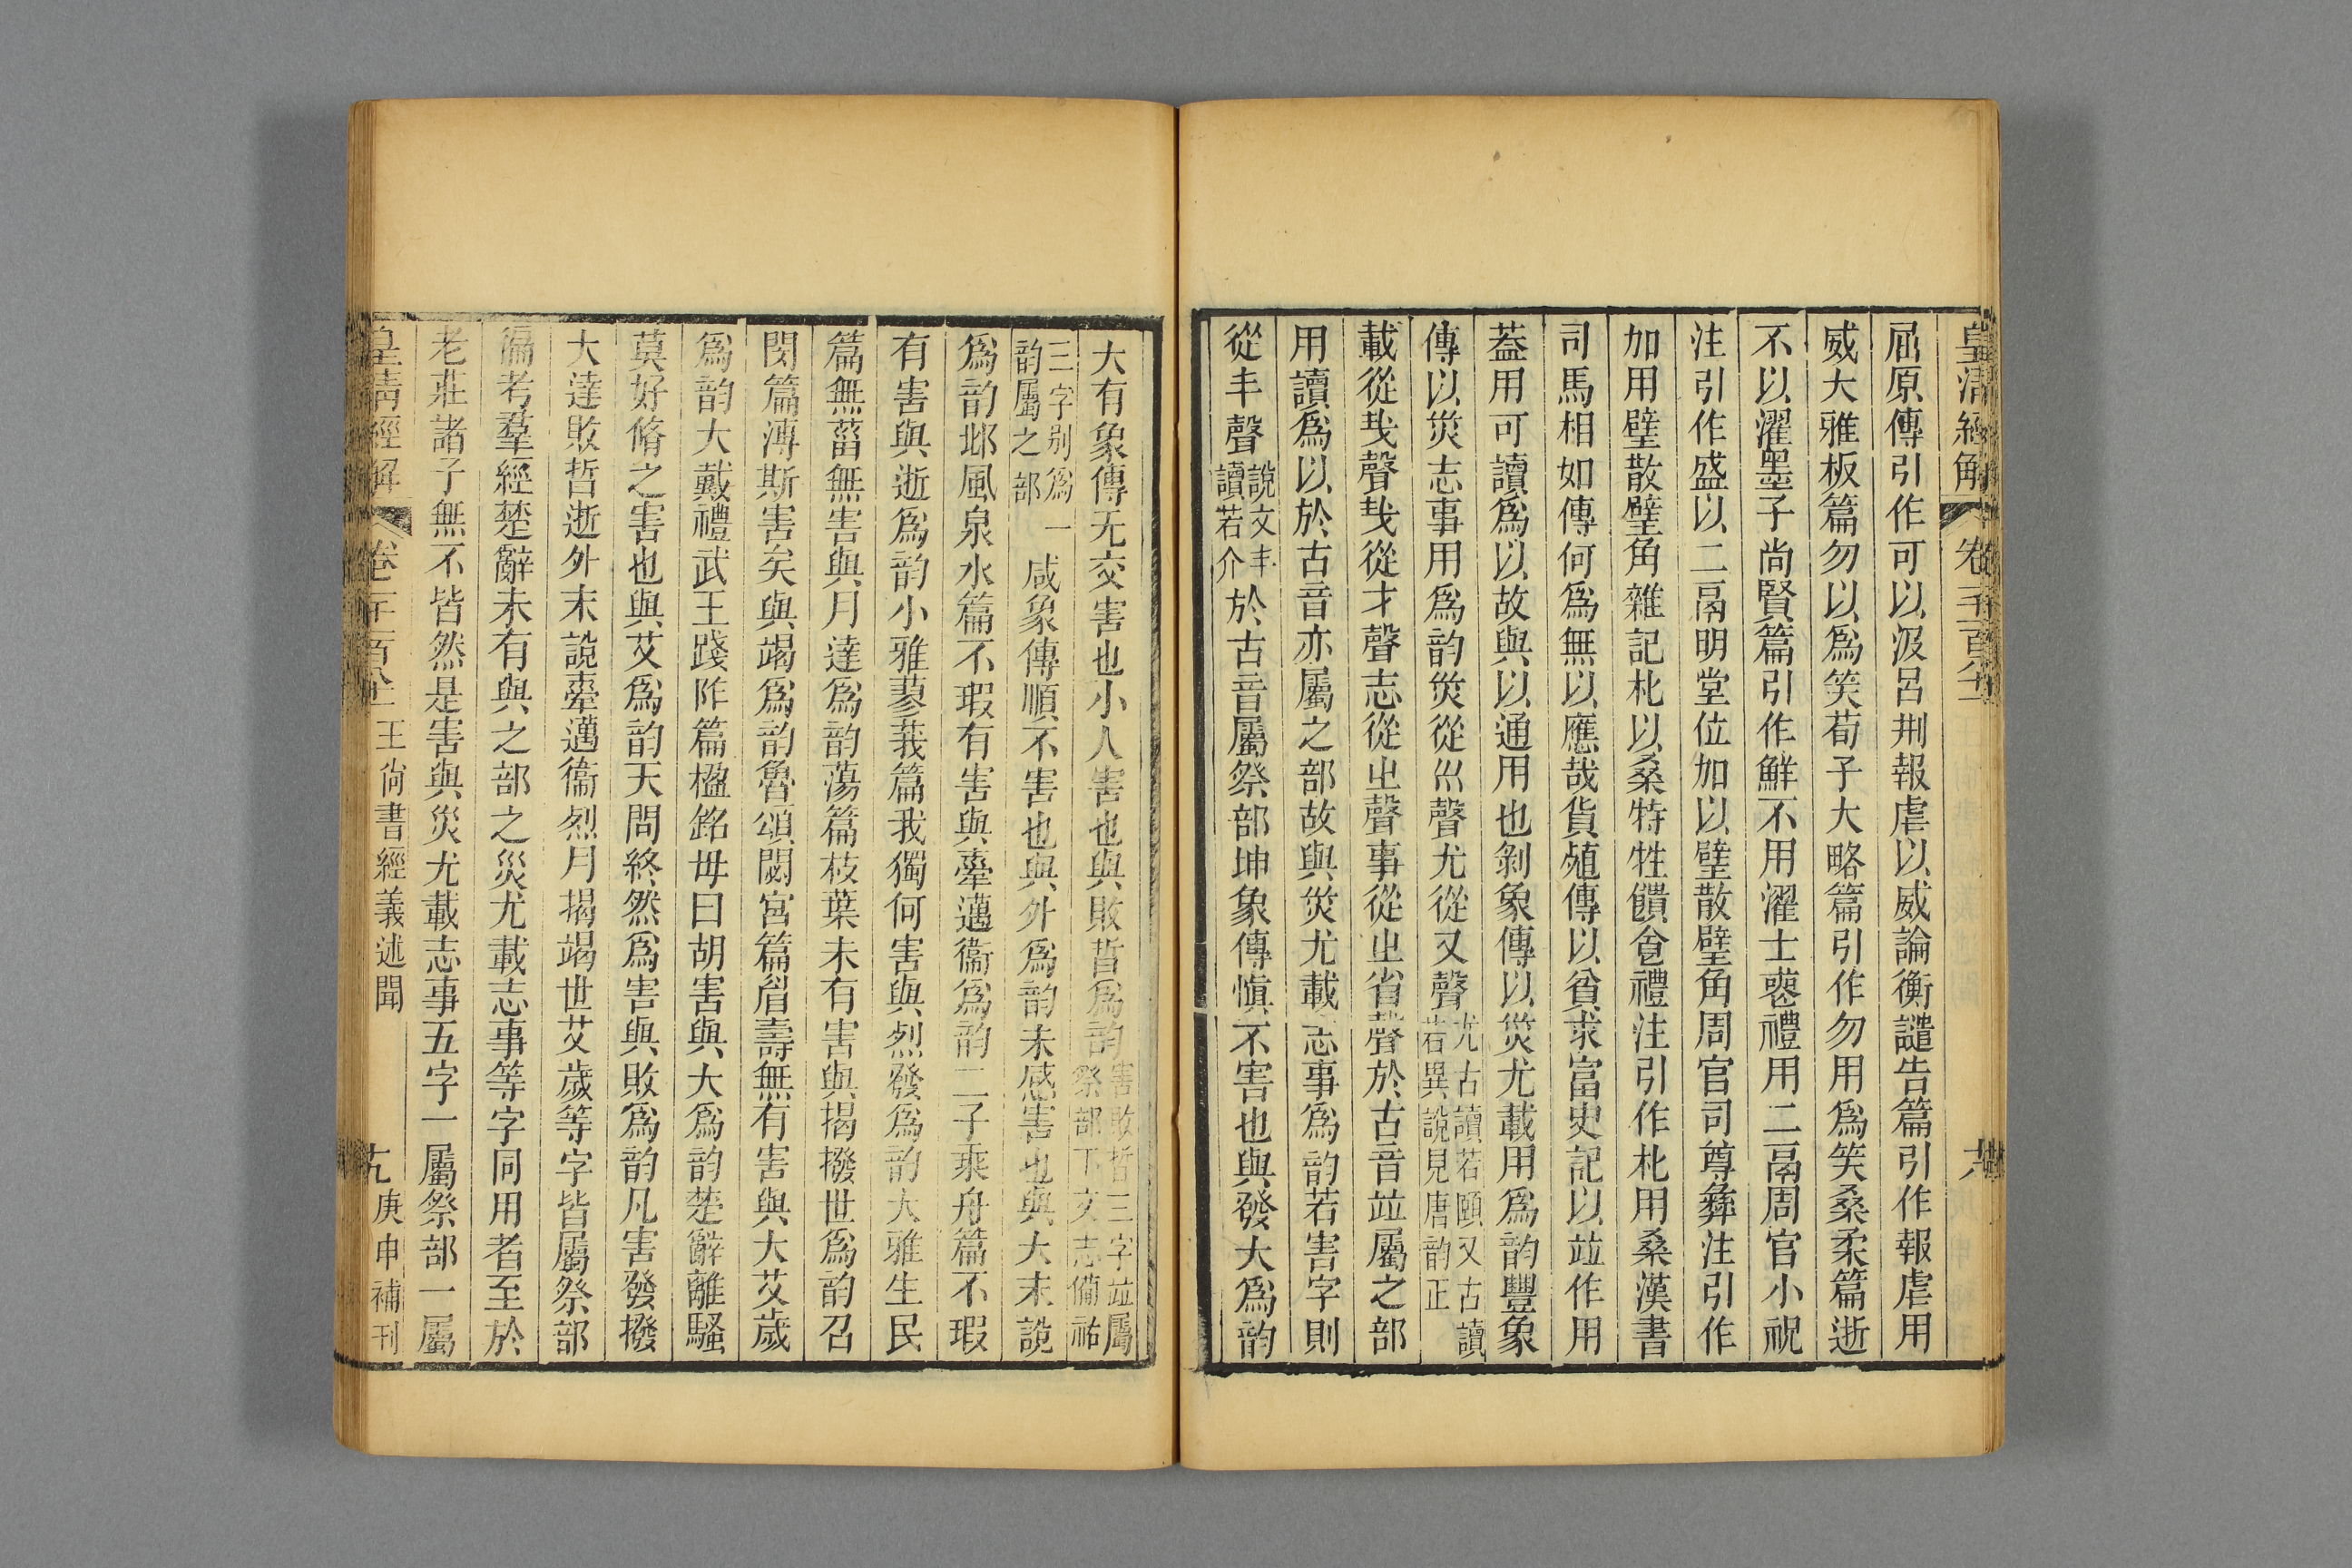 皇清經解 卷一千一百八十一 六
屈原傳引作可以汲呂刑報虐以威論衡譴告篇引作報虐用
威大雅板篇勿以爲笑荀子大略篇引作勿用爲笑桑柔篇逝
不以濯墨子尚賢篇引作鮮不用濯士喪禮用二鬲周官小祝
注引作盛以二鬲明堂位加以璧散璧角周官司尊彝注引作
加用璧散璧角雜記朼以桑特牲饋食禮注引作朼用桑漢書
司馬相如傳何爲無以應哉貨殖傳以貧求富史記以竝作用
葢用可讀爲以故與以通用也剝象傳以災尤載用爲韵豐象
傳以災志事用爲韵災從巛聲尤從又聲尤古讀若頤又古讀若異說見唐韵正
載從𢦏聲𢦏從才聲志從㞢聲事從㞢省聲於古音竝屬之部
用讀爲以於古音亦屬之部故與災尤載志事爲韵若害字則
從丯聲說文丯讀若介於古音屬祭部坤象傳愼不害也與發大爲韵
大有象傳无交害也小人害也與敗晢爲韵害敗晢三字竝屬祭部下文志備祐
三字別爲一韵屬之部咸象傳順不害也與外爲韵未感害也與大末說
爲韵邶風泉水篇不瑕有害與舝邁衞爲韵二子乘舟篇不瑕
有害與逝爲韵小雅蓼莪篇我獨何害與烈發爲韵大雅生民
篇無菑無害與月達爲韵蕩篇枝葉未有害與揭撥世爲韵召
閔篇溥斯害矣與竭爲韵魯頌閟宮篇眉壽無有害與大艾歲
爲韵大戴禮武王踐阼篇楹銘毋曰胡害與大爲韵楚辭離騷
莫好脩之害也與艾爲韵天問終然爲害與敗爲韵凡害發撥
大達敗晢逝外末說舝邁衞烈月揭竭世艾歲等字皆屬祭部
徧考羣經楚辭未有與之部之災尤載志事等字同用者至於
老莊諸子無不皆然是害與災尤載志事五字一屬祭部一屬
皇清經解 卷一千一百八十一 王尚書經義述聞 庚申補刊